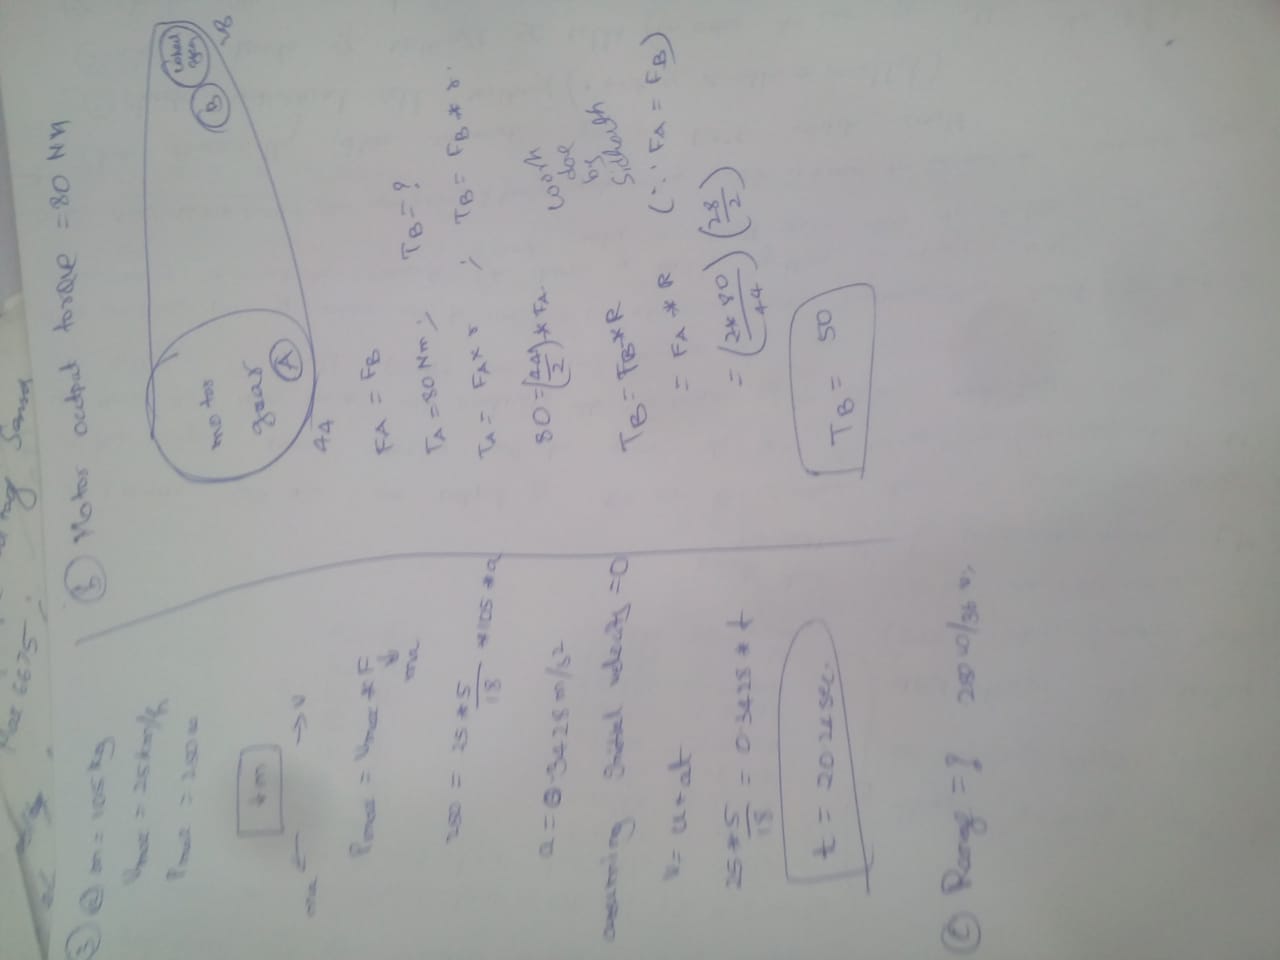 Max 6675 ;
③ ⓐ m = 105 kg
Vmax = 25 km/h
Pmax = 250 w
m
ma
v
Pmax = Vmax * F
ma
250 = 25 * 5/18 * 105 * a
a = 0.3428 m/s²
assuming Initial velocity = 0
V = u + at
25 * 5/18 = 0.3428 * t
t = 20.26 sec.
ⓑ Motor output torque = 80 NM
motor
gear
A
44
B
wheel
gear
28
FA = FB
TA = 80 Nm ; TB = ?
TA = FA × r ; TB = FB * r.
80 = (44/2) * FA.
work
doe
by
Sidharth
TB = FB * R
= FA * R (∵ FA = FB)
= (2 * 80/44) (28/2)
TB = 50
ⓒ Range = ? 250 w/36 v.